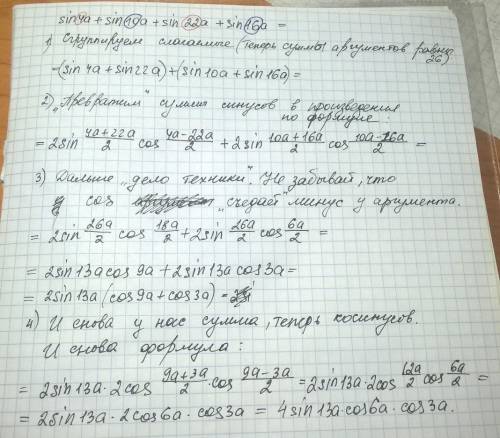 sin4a + sin10a + sin22a + sin16a =
1) Сгруппируем слагаемые (теперь суммы аргументов равны 26)
=(sin 4a + sin22a) + (sin 10a + sin 16a) =
2) „Превратим" суммы синусов в произведения
по формуле:
= 2sin (4a+22a)/2 cos (4a-22a)/2 + 2sin (10a+16a)/2 cos (10a-16a)/2 =
3) Дальше „дело техники". Не забывай, что
cos „съедает" минус у аргумента.
= 2sin 26a/2 cos 18a/2 + 2sin 26a/2 cos 6a/2 =
= 2sin 13a cos 9a + 2sin 13a cos 3a =
= 2sin 13a (cos 9a + cos 3a) =
4) И снова у нас сумма, теперь косинусов.
И снова формула:
= 2sin 13a · 2cos (9a+3a)/2 · cos (9a-3a)/2 = 2sin 13a · 2cos 12a/2 cos 6a/2 =
= 2sin 13a · 2cos 6a · cos 3a = 4sin 13a · cos 6a · cos 3a.